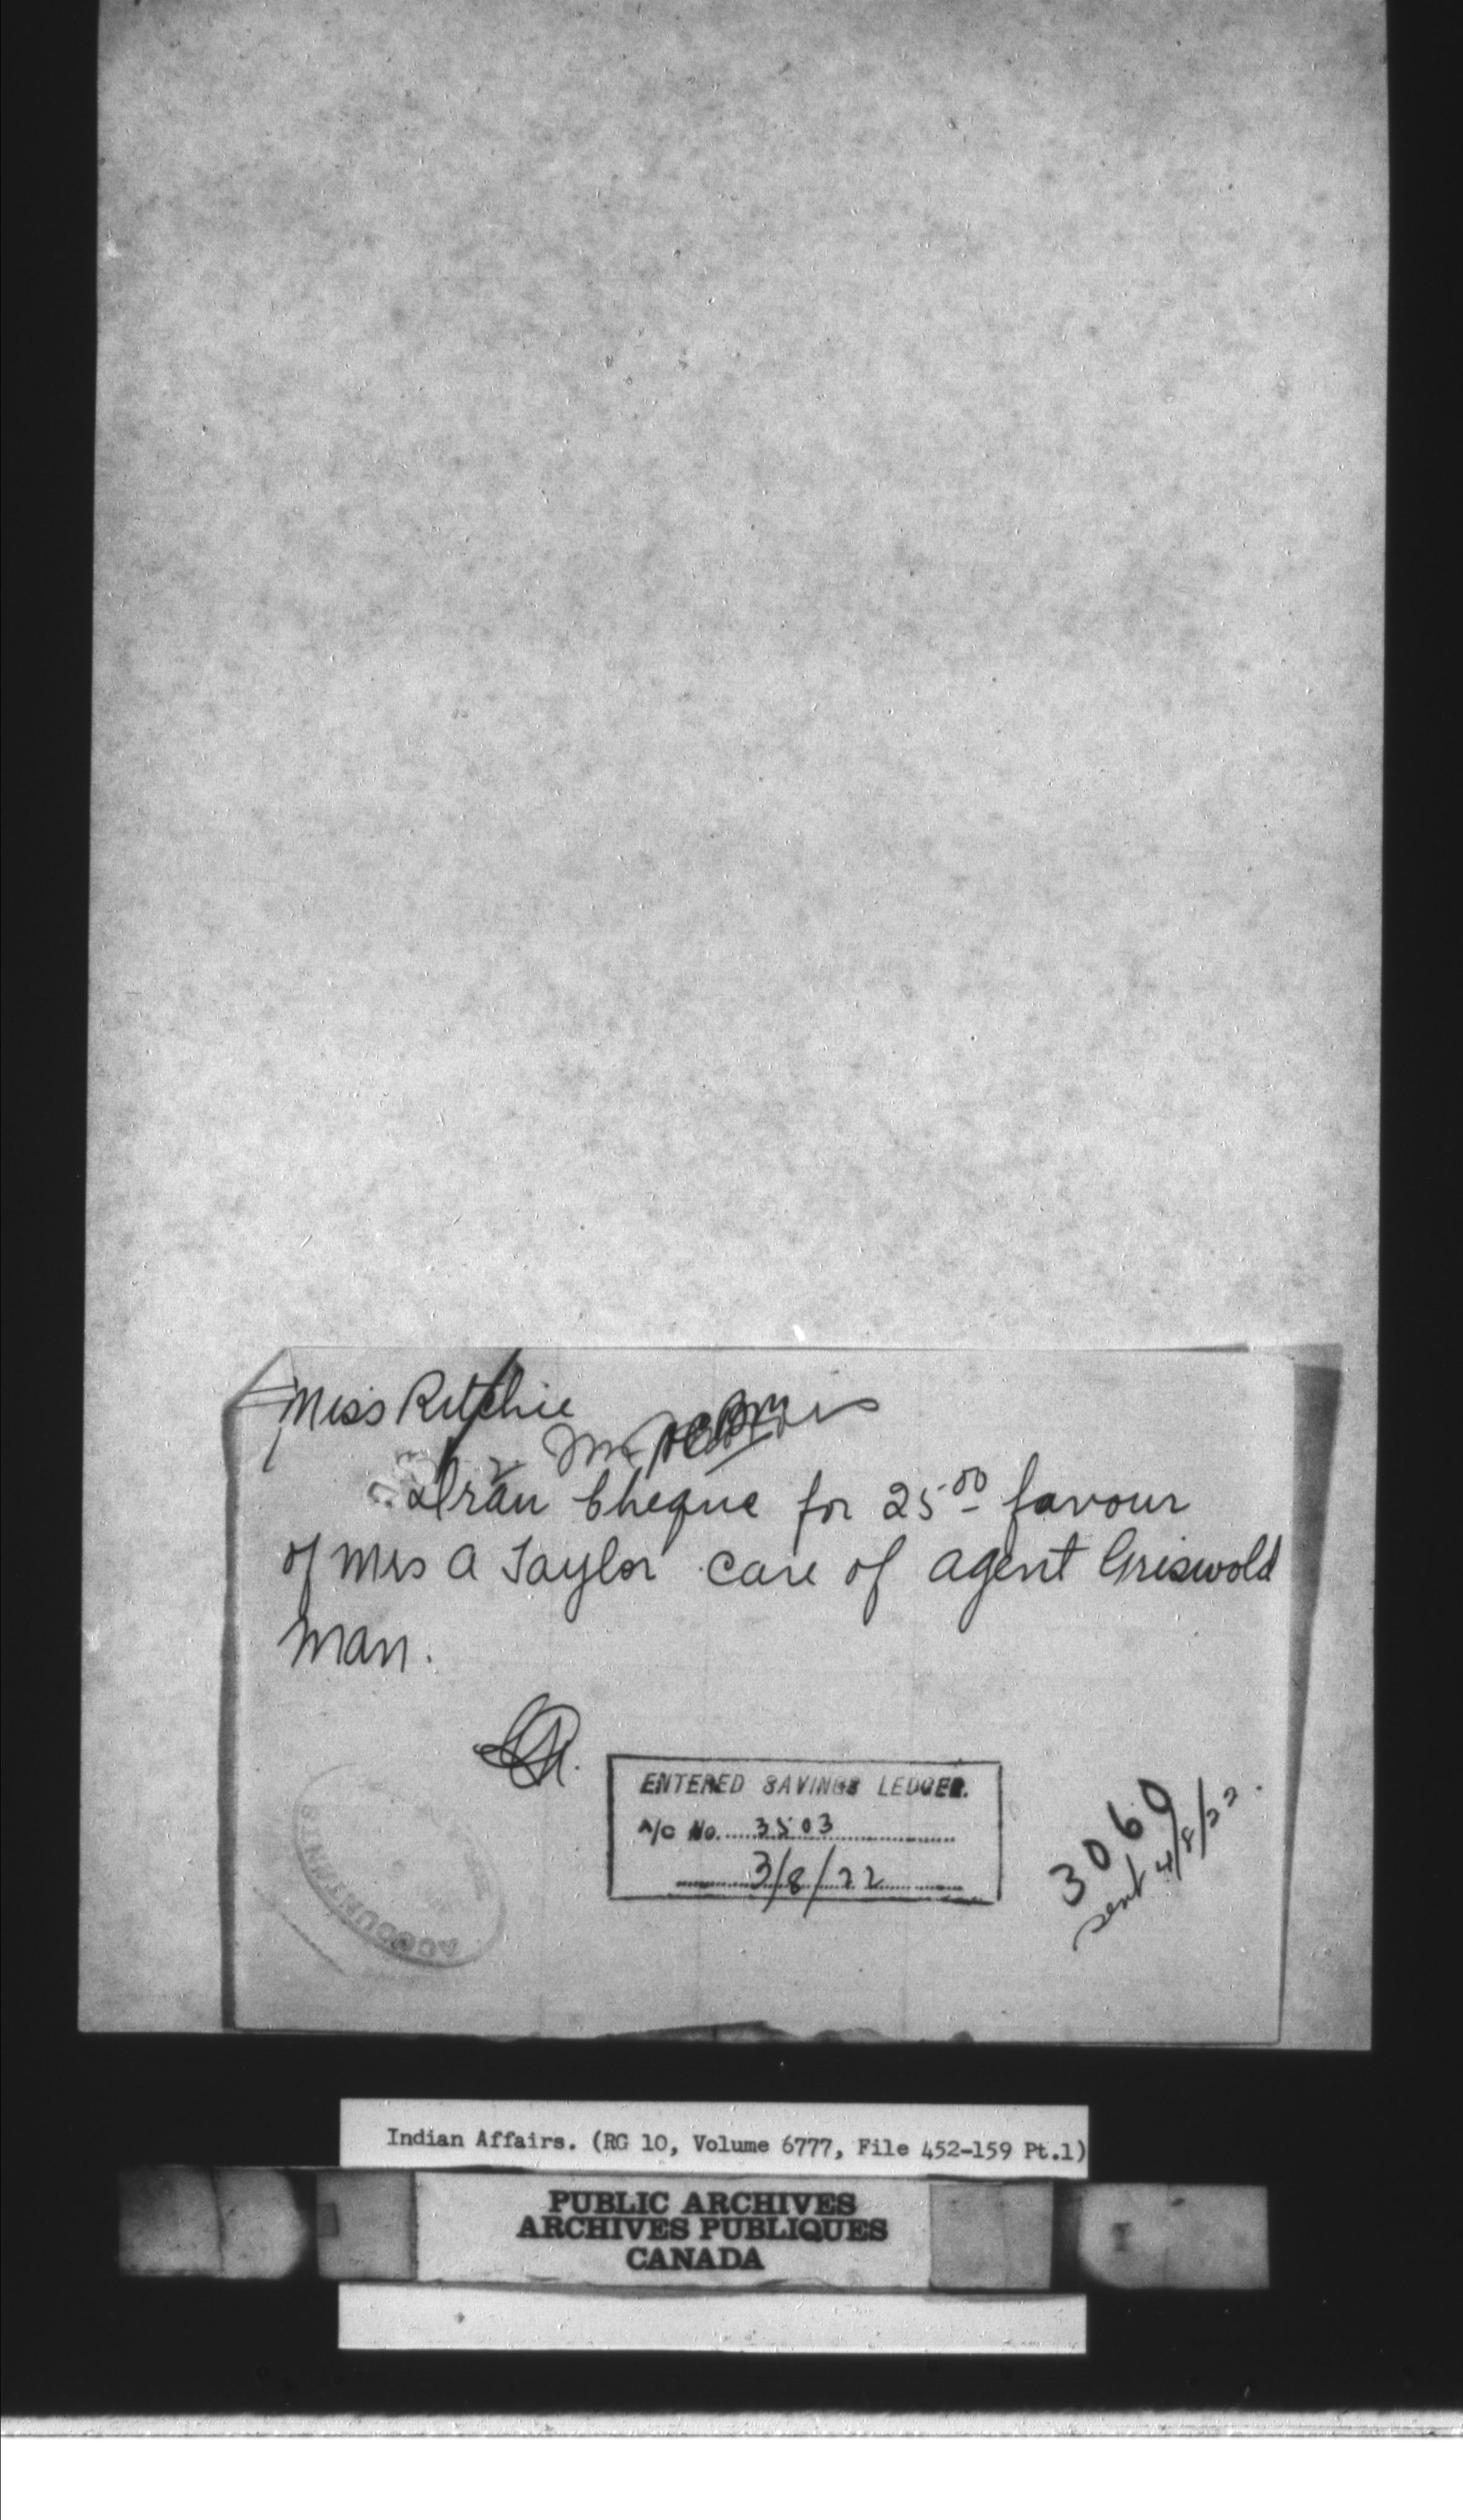 Miss Ritchie
Draw Cheque for 25.00 favour
of Mrs A Taylor care of agent Griswold
Man.
ENTERED SAVINGS LEDGER.
A/C No. 3503
3/8/22
3060
sent 4/8/22.
ACCOUNTANT'S
Indian Affairs. (RG 10, Volume 6777, File 452-159 Pt.1)
PUBLIC ARCHIVES
ARCHIVES PUBLIQUES
CANADA